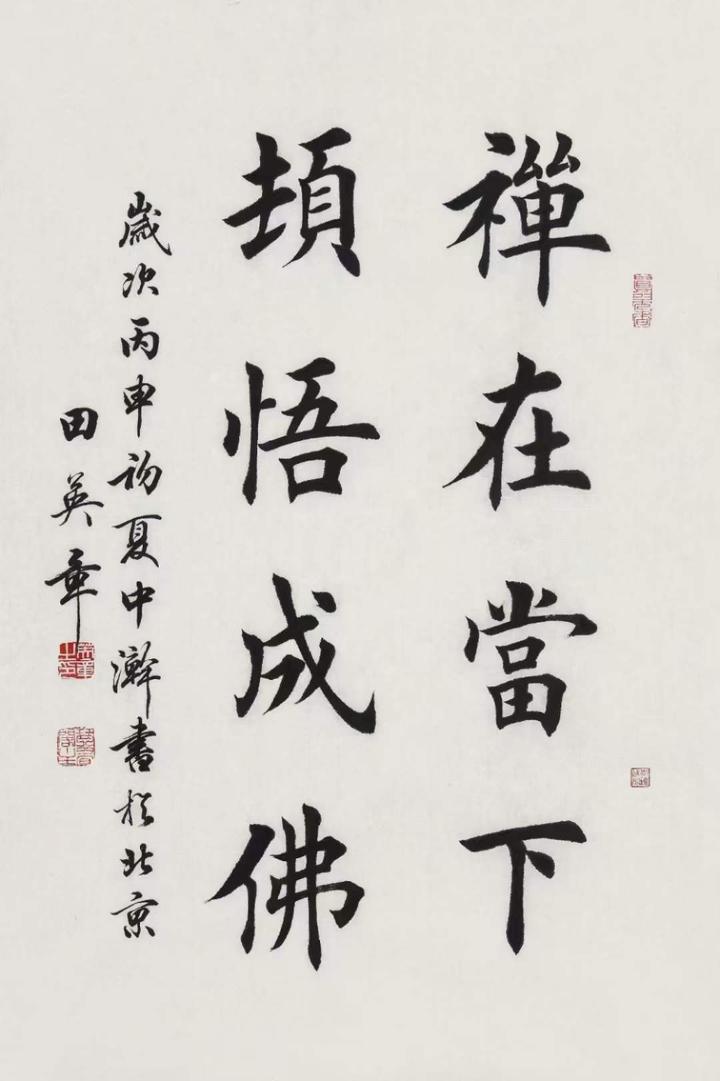 禪在當下
頓悟成佛
歲次丙申初夏中澣書於北京
田英章